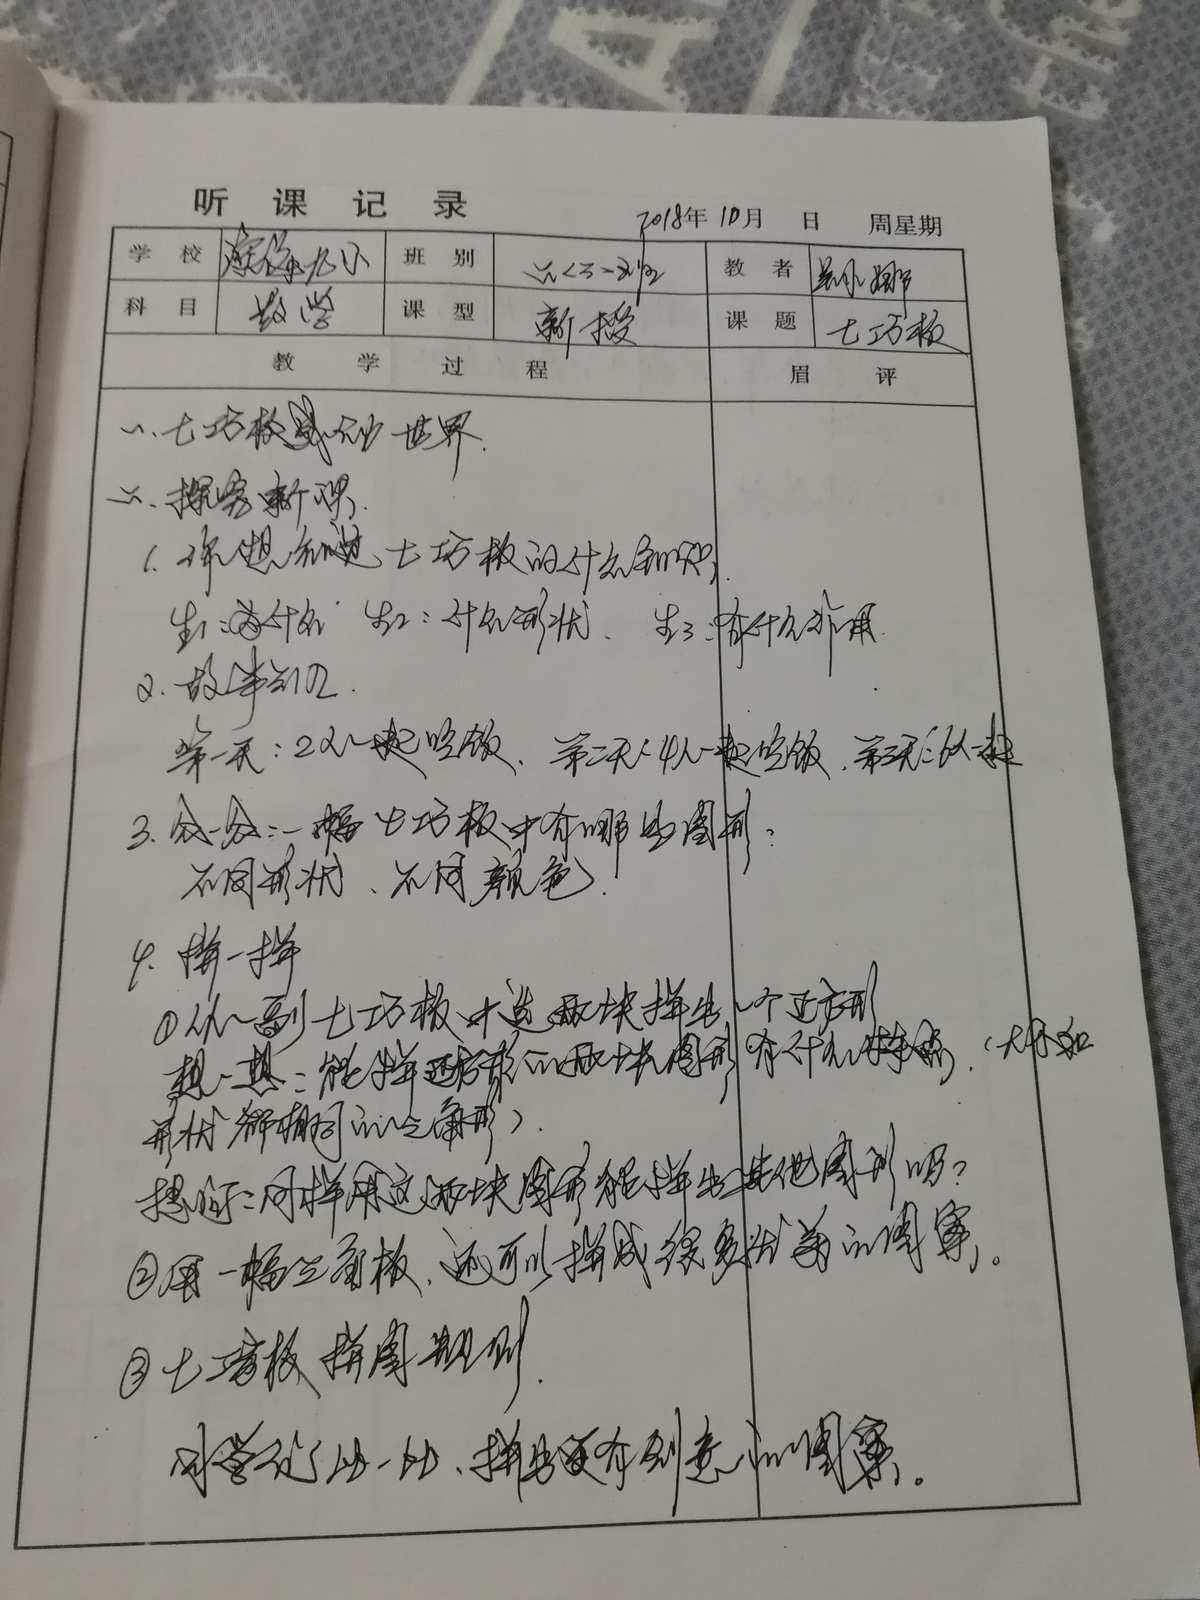 听课记录
2018年10月 日 周星期
学校 九小 班别 教者
科目 数学 课型 新授 课题 七巧板
教学过程 眉评
一、七巧板 世界.
二、探究新课.
1. 你想知道七巧板的什么知识.
生1: 为什么 生2: 什么形状、 生3: 有什么作用.
2. 故事
第一天: 2人一起吃饭、第二天: 4人一起吃饭、第三天:
3. 分一分: 一幅七巧板中有哪些图形?
不同形状、不同颜色.
4. 拼一拼
①从一副七巧板中选两块拼出一个正方形
想一想: 能拼正方形的两块图形有什么特点.(大小和
形状都相同的三角形).
同样用这两块图形能拼出其他图形吗?
②用一幅 板、还可以拼成很多 的图案。
③七巧板拼图规则.
同学们比一比、拼出更有创意的图案。